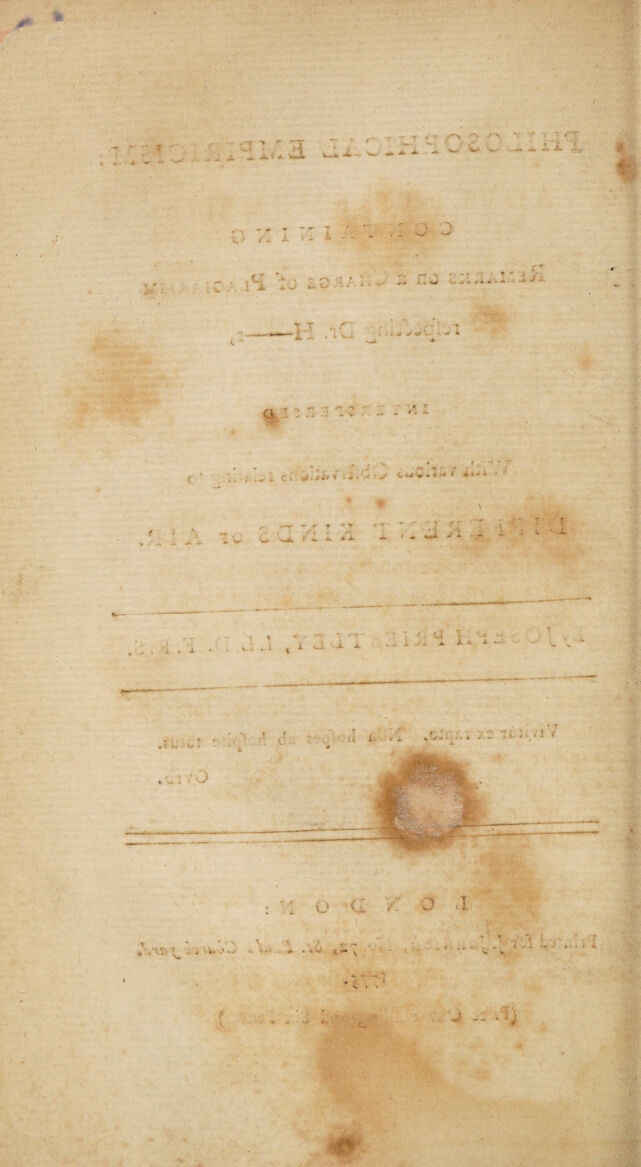 PHILOSOPHICAL EMPIRICISM:
CONTAINING
REMARKS on a CHARGE of PLAGIARISM
reſpecting Dr. H——s,
INTERSPERSED
With various Obſervations relating to
DIFFERENT KINDS OF AIR.
By JOSEPH PRIESTLEY, LL.D. F.R.S.
Vivitur ex rapto. Non hoſpes ab hoſpite tutus.
OVID.
LONDON:
Printed for J. Johnson, No. 72, St. Paul's Church-yard.
1775.
(Price One Shilling and Six-Pence.)